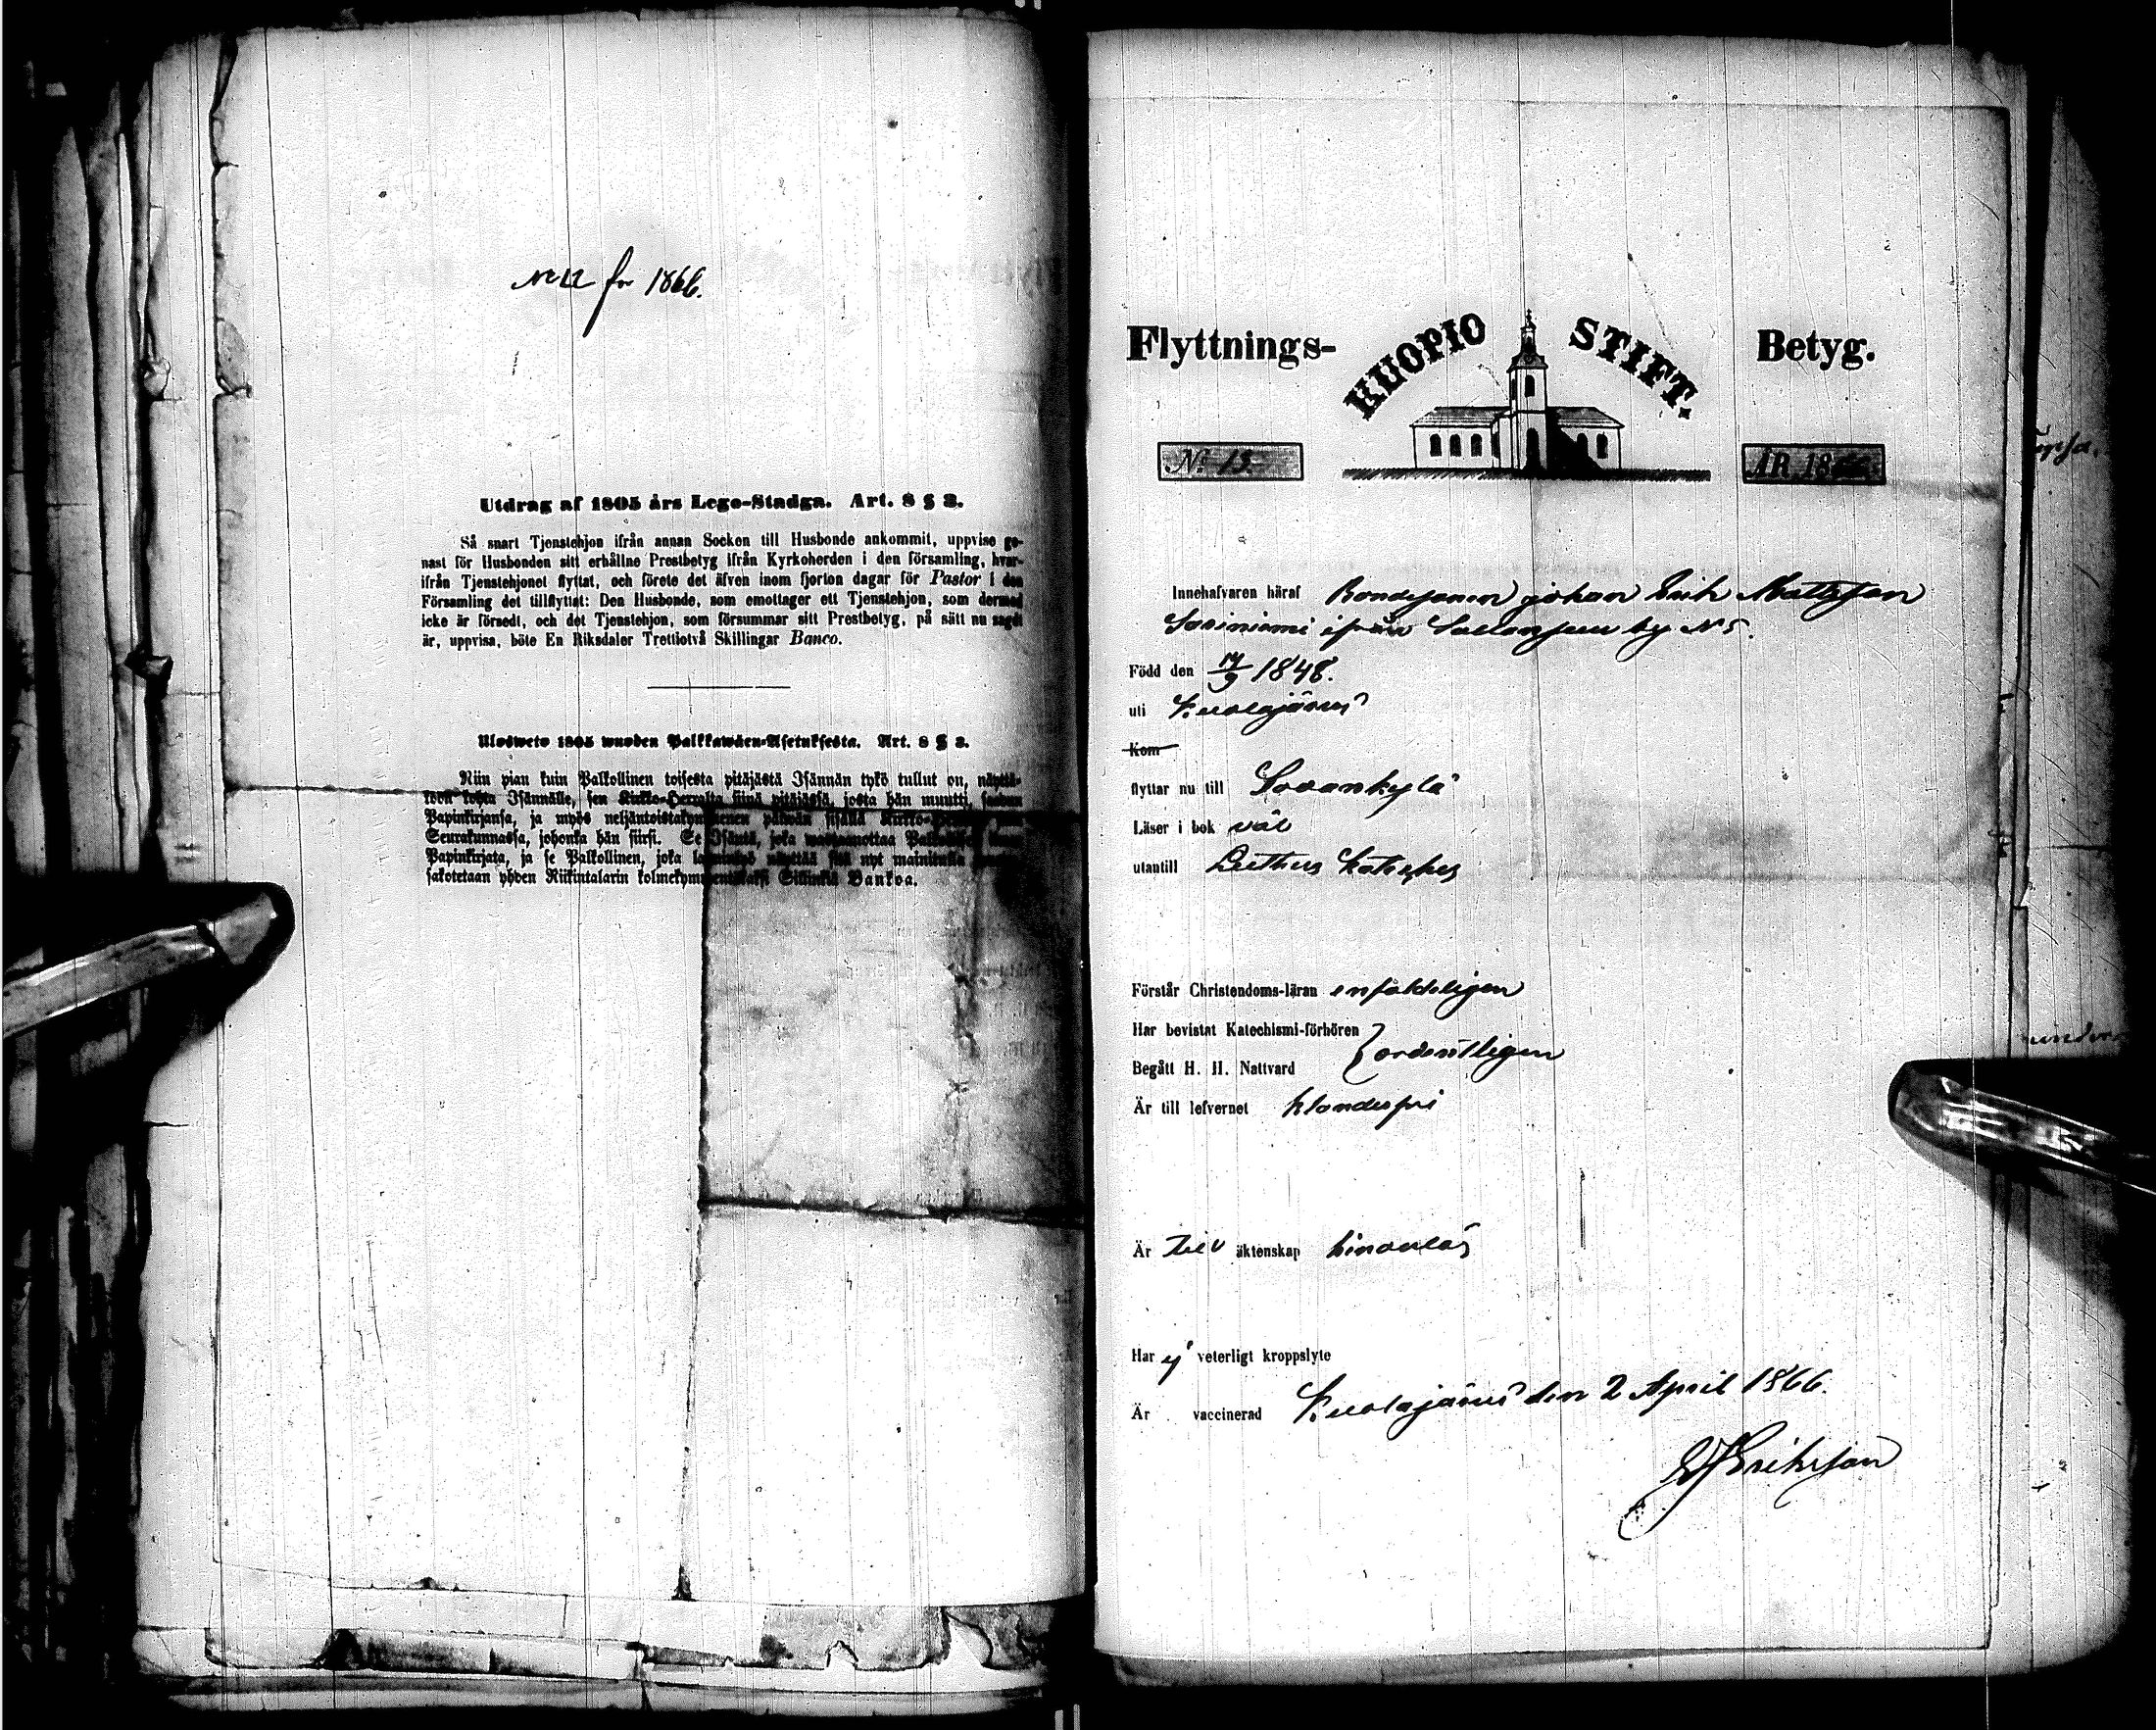 No 12 for 1866.
Utdrag af 1805 års Lego-Stadga. Art. 8 § 3.
Så snart Tjenstehjon ifrån annan Socken till Husbonde ankommit, uppvise ge-
nast för Husbonden sitt erhållne Prestbetyg ifrån Kyrkoherden i den församling, hvar-
ifrån Tjenstehjonet flyttat, och förete det äfven inom fjorton dagar för Pastor i den
Församling det tillflyttat: Den Husbonde, som emottager ett Tjenstehjon, som dermed
icke är försedt, och det Tjenstehjon, som försummar sitt Prestbetyg, på sätt nu sagdt
är, uppvisa, böte En Riksdaler Trettiotvå Skillingar Banco.
Ulosweto 1805 wuoden Palkkawäen-Asetuksesta. Art. 8 § 3.
Niin pian kuin Palkollinen toisesta pitäjästä Isännän tykö tullut on, näyttä-
köön kohta Isännälle, sen Kirkko-Herralta siinä pitäjässä, josta hän muutti, saadun
Papinkirjansa, ja myös neljäntoistakymmenen päiwän sisällä Kirkko-
Seurakunnassa, johonka hän siirsi. Se Isäntä, joka wastaanottaa
Papinkirjata, ja se Palkollinen, joka näyttää sitä nyt mainitulla
sakotetaan yhden Riikintalarin kolmekymmentäkaksi Sillinkiä Bankoa.
Flyttnings- KUOPIO STIFT. Betyg.
No 13. ÅR 18
Innehafvaren häraf Bondesonen Johan Erik Mattsson
Sariniemi ifrån Sallansuu by N 5.
Född den 14/9 1848.
uti Kuolajärvi
Kom
flyttar nu till Sodankylä
Läser i bok väl
utantill Luthers Kateches
Förstår Christendoms-läran enfaldeligen
Har bevistat Katechismi-förhören
Begått H. H. Nattvard } ordentligen
Är till lefvernet klanderfri
Är till äktenskap hinderlös
Har ej veterligt kroppslyte
Är vaccinerad Kuolajärvi den 2 April 1866.
Eriksson